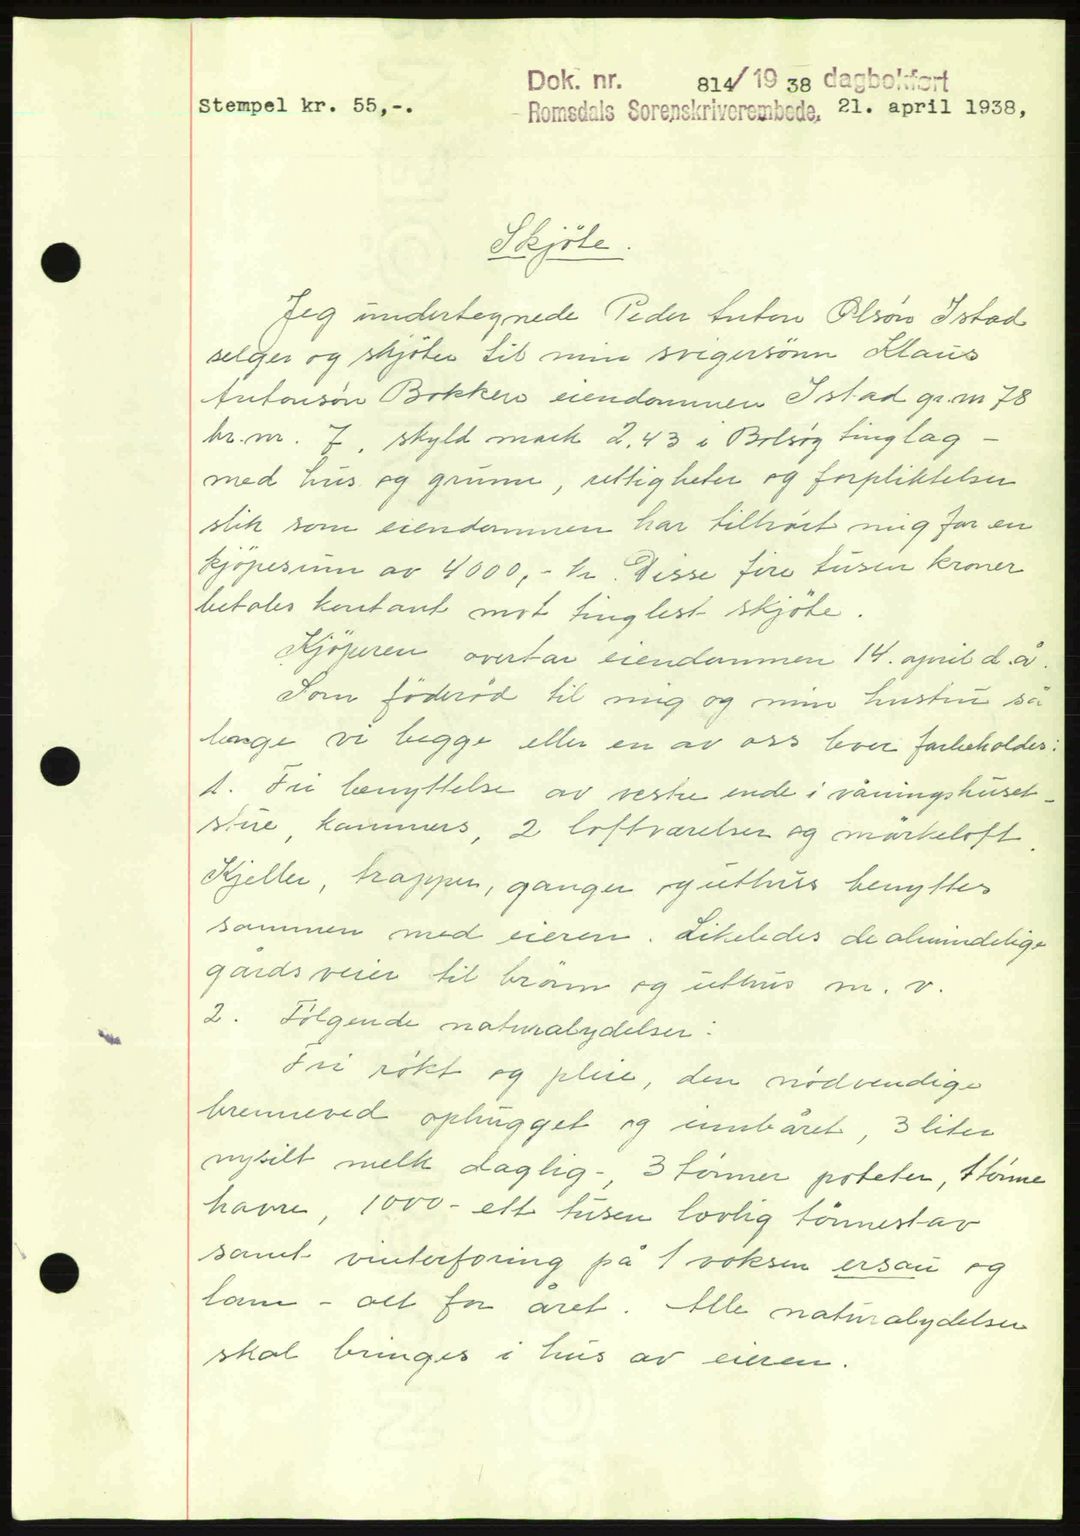 Dok. nr. 814/1938 dagbokført
Stempel kr. 55,-. Romsdals Sorenskriverembede, 21. april 1938,
Skjöte.
Jeg undertegnede Peder Anton Olsön Istad
selger og skjöter til min svigersönn Klaus
Antonsön Bokken eiendommen Istad gr.nr 78
br.nr. 7, skyld mark 2,43 i Bolsöy tinglag -
med hus og grunn, rettigheter og forpliktelser
slik som eiendommen har tilhört mig for en
kjöpesum av 4000,- kr. Disse fire tusen kroner
betales kontant mot tinglest skjöte.
Kjöperen overtar eiendommen 14. april d.å.
Som föderåd til mig og min hustru så
lenge vi begge eller en av oss lever forbeholdes:
1. Fri benyttelse av vestre ende i våningshuset -
stue, kammers, 2 loftværelser og mörkeloft.
Kjeller, trapper, ganger og uthus benyttes
sammen med eieren. Likeledes de almindelige
gårdsveier til brönn og uthus m. v.
2. Fölgende naturalydelser:
Fri rökt og pleie, den nödvendige
brenneved ophugget og innbåret, 3 liter
nysilt melk daglig -, 3 tönner poteter, 1 tönne
havre, 1000 - ett tusen lovlig tönnestav
samt vinterforing på 1 voksen ersau og
lam - alt for året. Alle naturalydelser
skal bringes i hus av eieren.